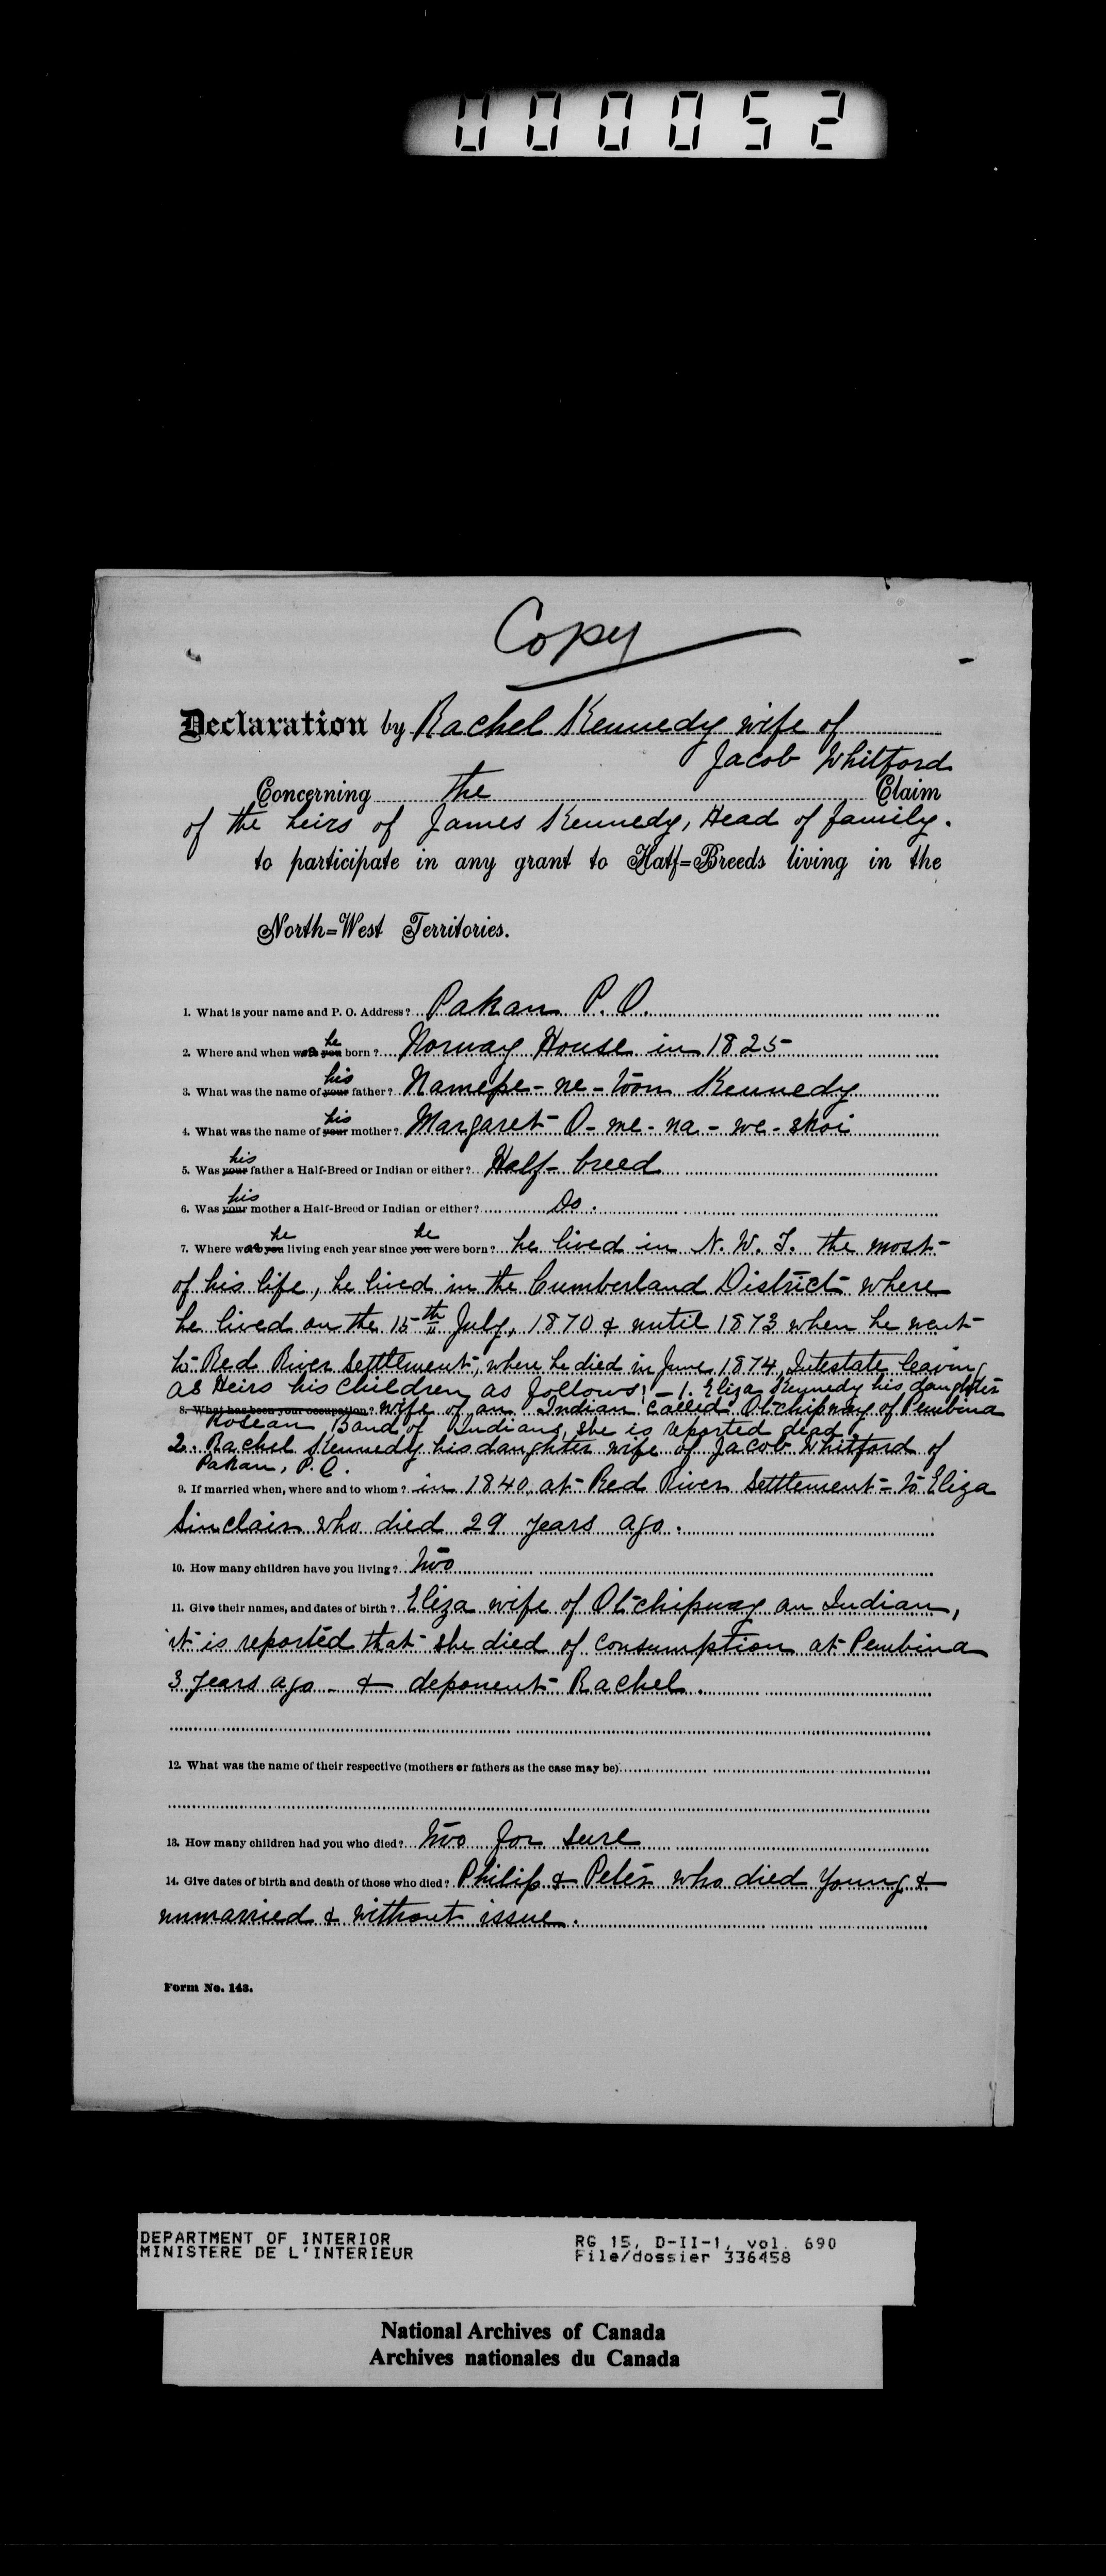 000052
Copy
Declaration by Rachel Kennedy wife of
Jacob Whitford
Concerning the Claim
of the heirs of James Kennedy, Head of family.
to participate in any grant to Half=Breeds living in the
North=West Territories.
1. What is your name and P. O. Address? Pakan P. O.
he
2. Where and when was you born? Norway House in 1825
his
3. What was the name of your father? Namepe-ne-toon Kennedy
his
4. What was the name of your mother? Margaret O-me-na-we-skoi
his
5. Was your father a Half-Breed or Indian or either? Half-breed
his
6. Was your mother a Half-Breed or Indian or either? Do.
he he
7. Where was you living each year since you were born? he lived in N. W. T. the most
of his life, he lived in the Cumberland District where
he lived on the 15th July, 1870 & until 1873 when he went
to Red River Settlement, where he died in June 1874, Intestate leaving
as Heirs his children as follows:- 1. Eliza Kennedy his daughter
8. What has been your occupation? wife of an Indian called Otchipway of Pembina
Rosean Band of Indians, she is reported dead
2. Rachel Kennedy his daughter wife of Jacob Whitford of
Pakan, P.O.
9. If married when, where and to whom? in 1840 at Red River Settlement = to Eliza
Sinclair who died 29 years ago.
10. How many children have you living? Two
11. Give their names, and dates of birth? Eliza wife of Otchipway an Indian,
it is reported that she died of consumption at Pembina
3 years ago & deponent Rachel.
12. What was the name of their respective (mothers or fathers as the case may be)
13. How many children had you who died? Two for sure
14. Give dates of birth and death of those who died? Philip & Peter who died young &
unmarried & without issue.
Form No. 143.
DEPARTMENT OF INTERIOR RG 15, D-II-1, vol. 690
MINISTERE DE L'INTERIEUR File/dossier 336458
National Archives of Canada
Archives nationales du Canada